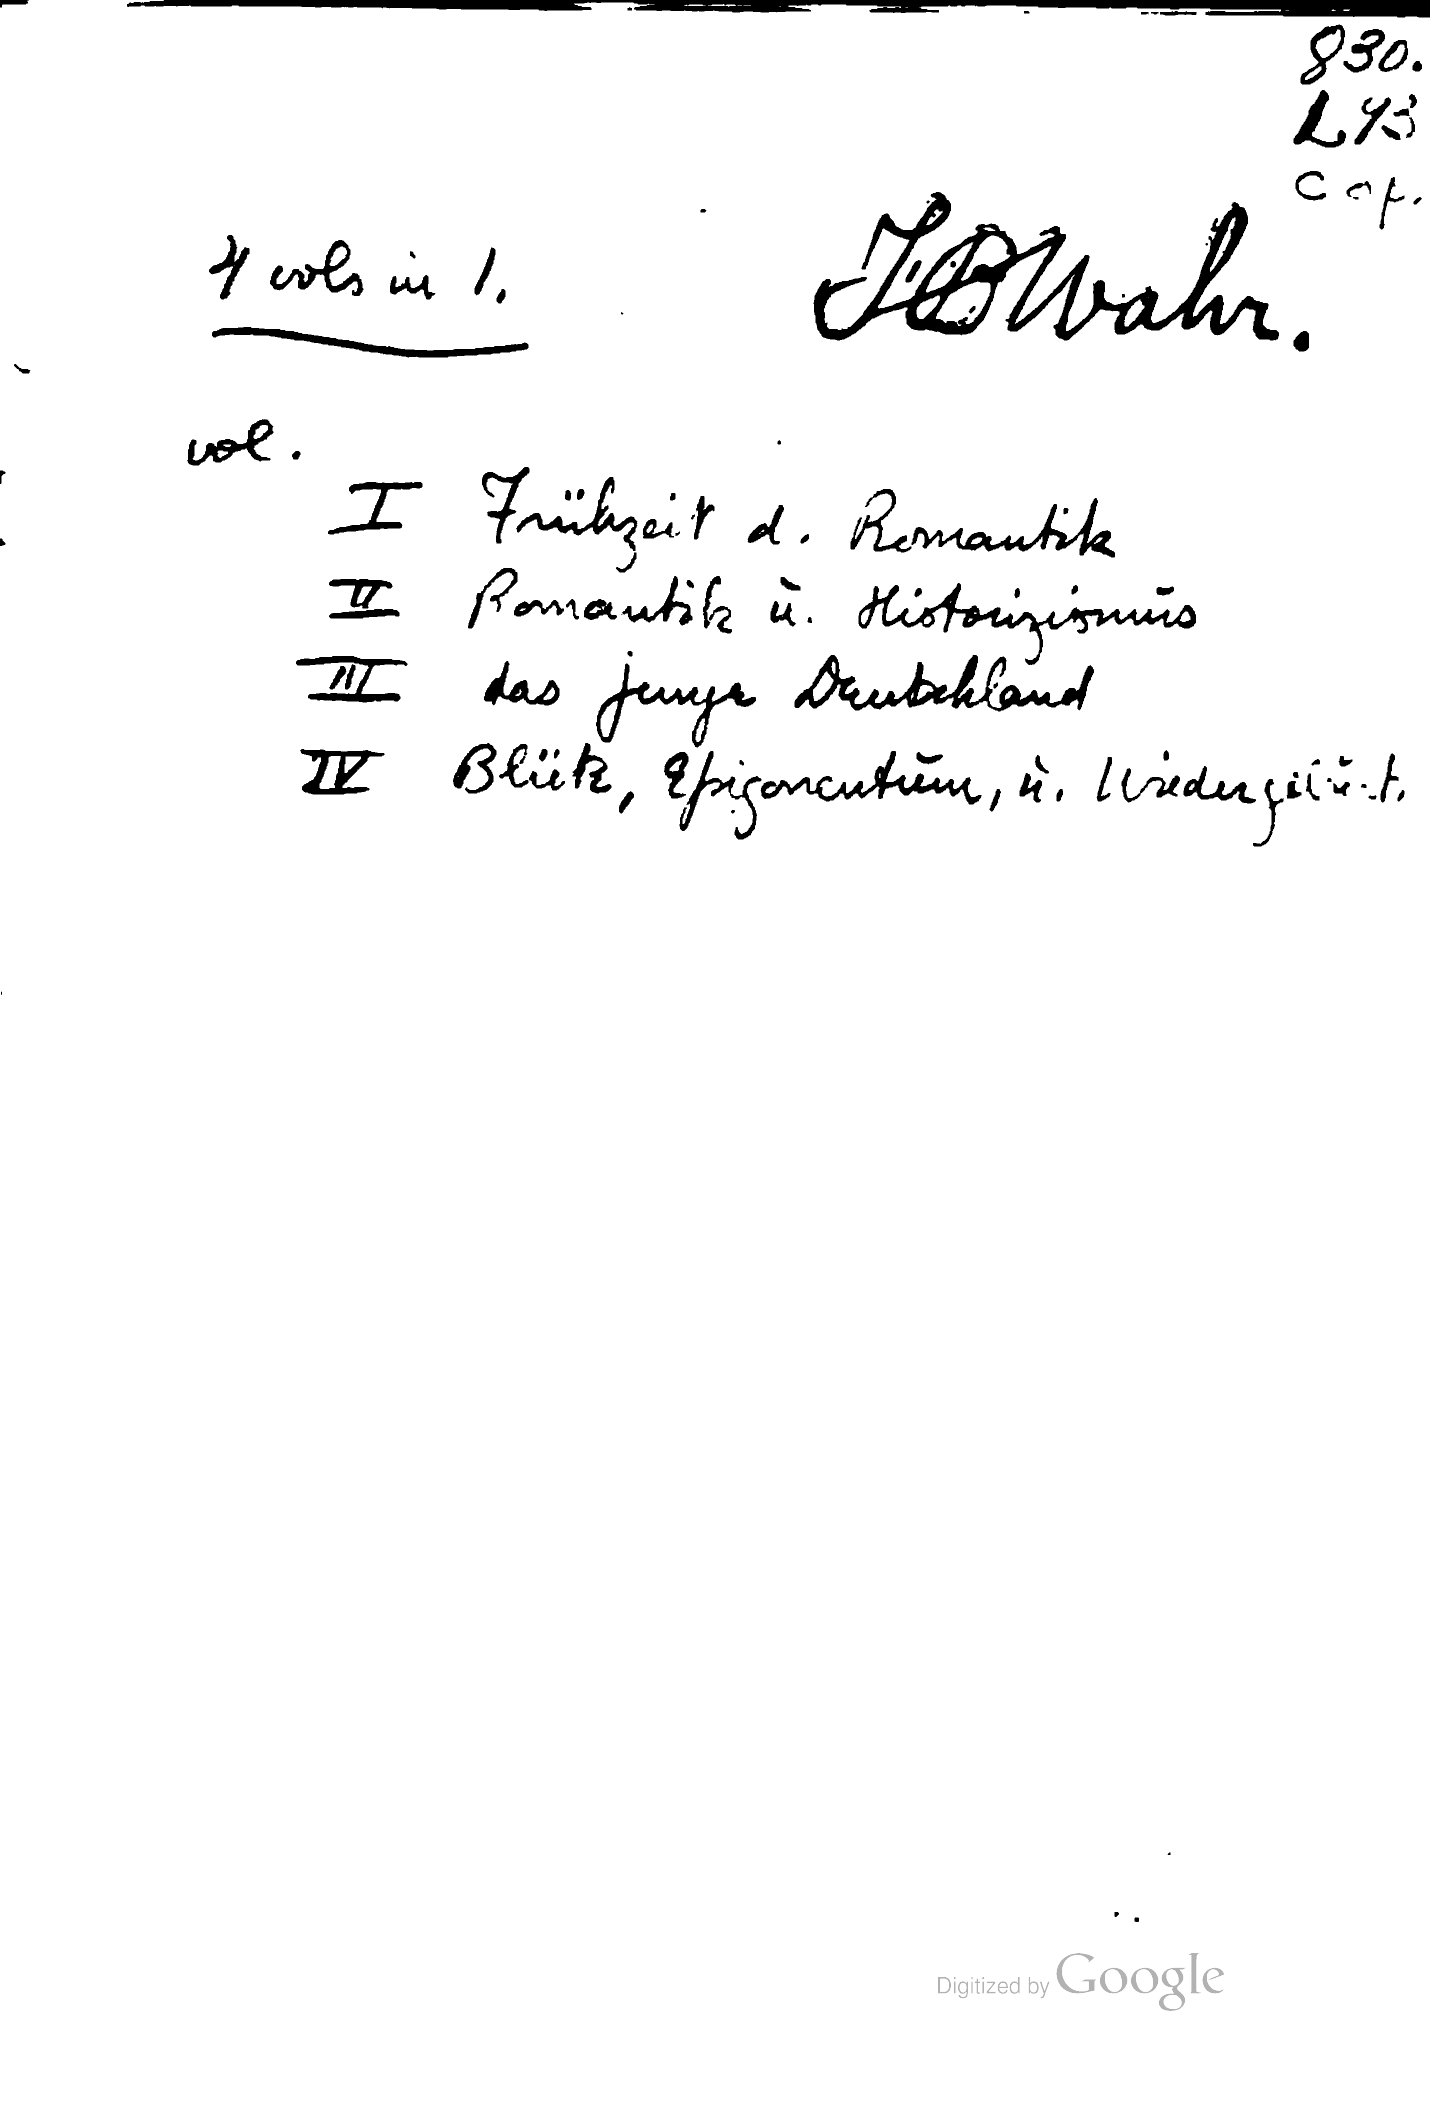 830.
L93
cop.
4 vols in 1.
FBWahr.
vol.
I Frühzeit d. Romantik
II Romantik u. Historizismus
III das junge Deutschland
IV Blüte, Epigonentum, u. Wiedergeburt.
Digitized by Google